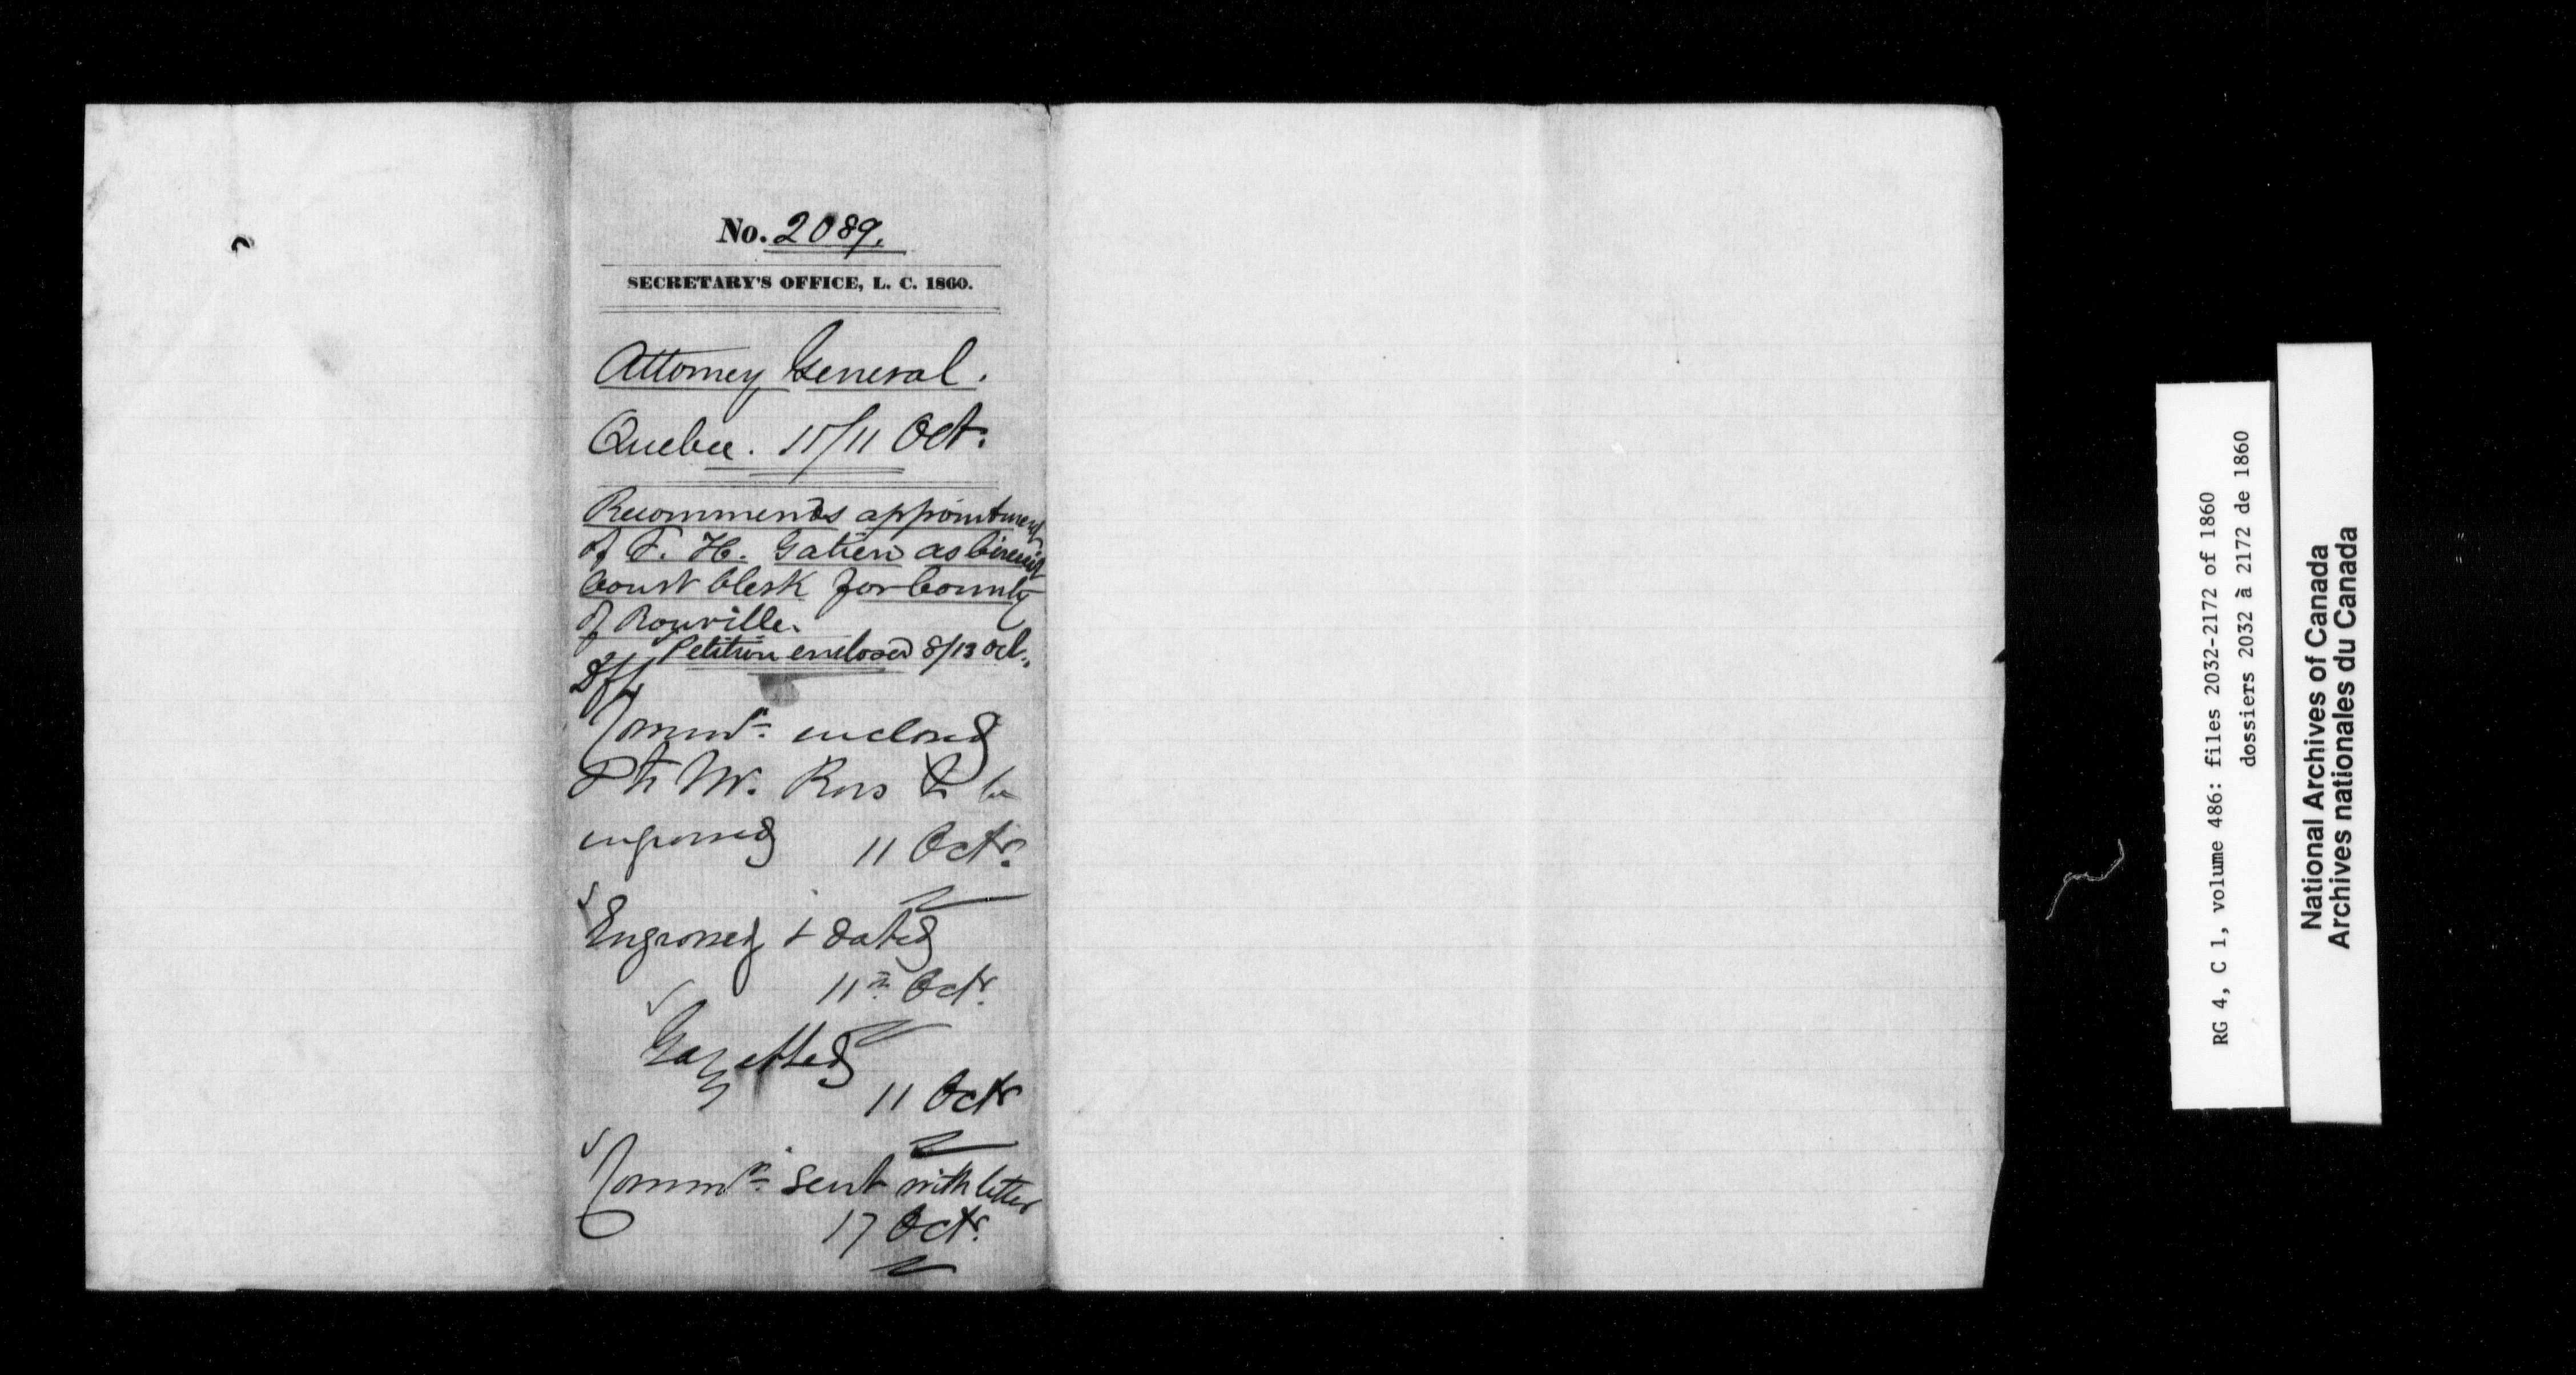 No. 2089.
SECRETARY'S OFFICE, L. C. 1860.
Attorney General.
Quebec. 11 Oct.
Recommends appointment
of F. H. Gatien as Circuit
Court Clerk for County
of Rouville.
Petition enclosed 8/13 Oct.
Commn. enclosed
Mr. Ross to be
engrossed 11 Octr.
Engrossed & dated
11th Octr.
Gazetted
11 Octr
Commn. sent with letter
17 Octr.
RG 4, C 1, volume 486: files 2032-2172 of 1860
dossiers 2032 à 2172 de 1860
National Archives of Canada
Archives nationales du Canada